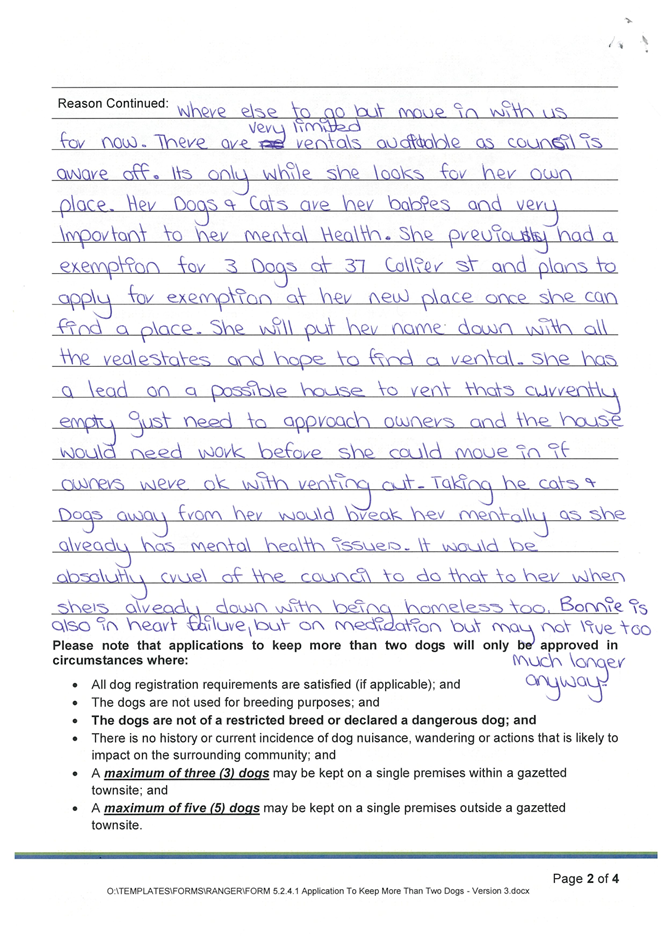 Reason Continued: where else to go but move in with us
very limited
for now. There are rentals avaitable as council is
aware off. Its only while she looks for her own
place. Her Dogs & Cats are her babies and very
Important to her mental Health. She previously had a
exemption for 3 Dogs at 37 Collier st and plans to
apply for exemption at her new place once she can
find a place. She will put her name down with all
the realestates and hope to find a rental. She has
a lead on a possible house to rent thats currently
empty just need to approach owners and the house
would need work before she could move in if
owners were ok with renting out. Taking he cats &
Dogs away from her would break her mentally as she
already has mental health issues. It would be
absolutly cruel of the council to do that to her when
sheis already down with being homeless too. Bonnie is
also in heart failure, but on medication but may not live too
much longer
anyway.
Please note that applications to keep more than two dogs will only be approved in
circumstances where:
• All dog registration requirements are satisfied (if applicable); and
• The dogs are not used for breeding purposes; and
• The dogs are not of a restricted breed or declared a dangerous dog; and
• There is no history or current incidence of dog nuisance, wandering or actions that is likely to
impact on the surrounding community; and
• A maximum of three (3) dogs may be kept on a single premises within a gazetted
townsite; and
• A maximum of five (5) dogs may be kept on a single premises outside a gazetted
townsite.
Page 2 of 4
O:\TEMPLATES\FORMS\RANGER\FORM 5.2.4.1 Application To Keep More Than Two Dogs - Version 3.docx